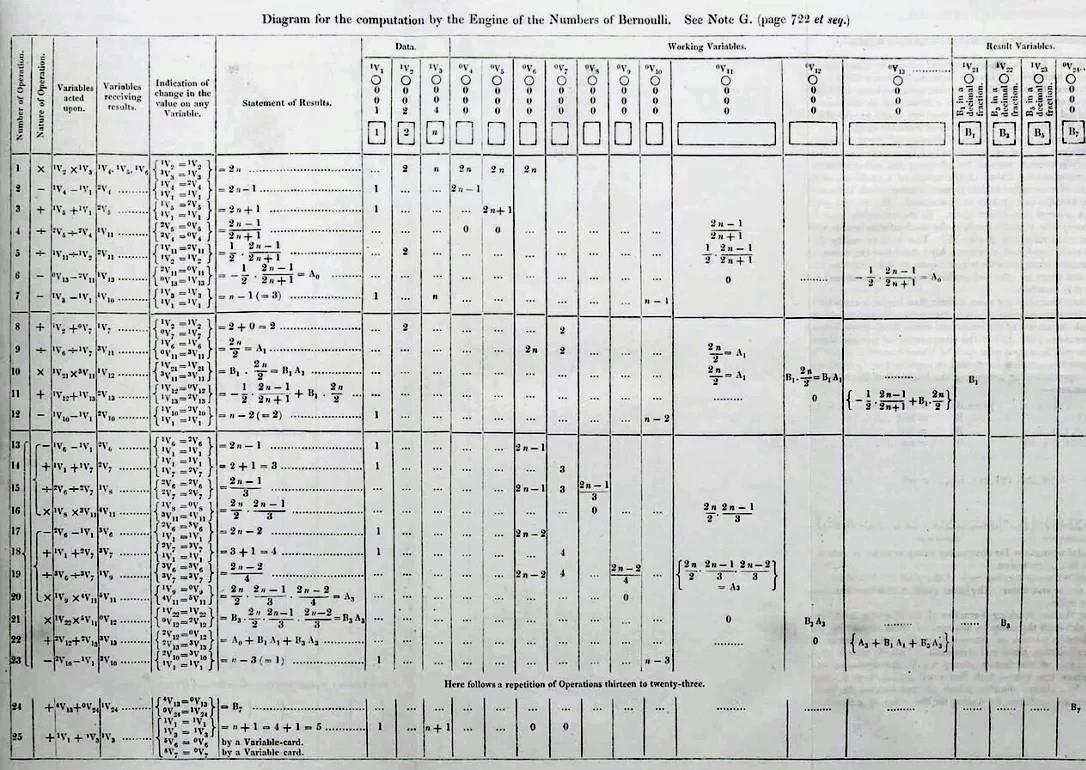 Diagram for the computation by the Engine of the Numbers of Bernoulli. See Note G. (page 722 et seq.)
Number of Operation. Nature of Operation. Variables acted upon. Variables receiving results. Indication of change in the value on any Variable. Statement of Results. Data. Working Variables. Result Variables.
¹V₁ ¹V₂ ¹V₃ ⁰V₄ ⁰V₅ ⁰V₆ ⁰V₇ ⁰V₈ ⁰V₉ ⁰V₁₀ ⁰V₁₁ ⁰V₁₂ ⁰V₁₃ ............ ¹V₂₁ ¹V₂₂ ¹V₂₃ ⁰V₂₄
○ ○ ○ ○ ○ ○ ○ ○ ○ ○ ○ ○ ○
0 0 0 0 0 0 0 0 0 0 0 0 0
0 0 0 0 0 0 0 0 0 0 0 0 0
1 2 4 0 0 0 0 0 0 0 0 0 0
B₁ in a decimal fraction. B₃ in a decimal fraction. B₅ in a decimal fraction.
1 2 n B₁ B₃ B₅ B₇
1 × ¹V₂ × ¹V₃ ¹V₄, ¹V₅, ¹V₆ {¹V₂ = ¹V₂ ¹V₃ = ¹V₃} = 2n ... 2 n 2n 2n 2n
2 − ¹V₄ − ¹V₁ ²V₄ {¹V₄ = ²V₄ ¹V₁ = ¹V₁} = 2n − 1 1 ... ... 2n − 1
3 + ¹V₅ + ¹V₁ ²V₅ {¹V₅ = ²V₅ ¹V₁ = ¹V₁} = 2n + 1 1 ... ... ... 2n + 1
4 ÷ ²V₅ ÷ ²V₄ ¹V₁₁ {²V₅ = ⁰V₅ ²V₄ = ⁰V₄} = (2n − 1)/(2n + 1) ... ... ... 0 0 ... ... ... ... ... (2n − 1)/(2n + 1)
5 ÷ ¹V₁₁ ÷ ¹V₂ ²V₁₁ {¹V₁₁ = ²V₁₁ ¹V₂ = ¹V₂} = 1/2 · (2n − 1)/(2n + 1) ... 2 ... ... ... ... ... ... ... ... 1/2 · (2n − 1)/(2n + 1)
6 − ⁰V₁₃ − ²V₁₁ ¹V₁₃ {²V₁₁ = ⁰V₁₁ ⁰V₁₃ = ¹V₁₃} = − 1/2 · (2n − 1)/(2n + 1) = A₀ ... ... ... ... ... ... ... ... ... ... 0 ... − 1/2 · (2n − 1)/(2n + 1) = A₀
7 − ¹V₃ − ¹V₁ ¹V₁₀ {¹V₃ = ¹V₃ ¹V₁ = ¹V₁} = n − 1 (= 3) 1 ... n ... ... ... ... ... ... n − 1
8 + ¹V₂ + ⁰V₇ ¹V₇ {¹V₂ = ¹V₂ ⁰V₇ = ¹V₇} = 2 + 0 = 2 ... 2 ... ... ... ... 2
9 ÷ ¹V₆ ÷ ¹V₇ ³V₁₁ {¹V₆ = ¹V₆ ⁰V₁₁ = ³V₁₁} = 2n/2 = A₁ ... ... ... ... ... 2n 2 ... ... ... 2n/2 = A₁
10 × ¹V₂₁ × ³V₁₁ ¹V₁₂ {¹V₂₁ = ¹V₂₁ ³V₁₁ = ³V₁₁} = B₁ · 2n/2 = B₁A₁ ... ... ... ... ... ... ... ... ... ... 2n/2 = A₁ B₁ · 2n/2 = B₁A₁ ... B₁
11 + ¹V₁₂ + ¹V₁₃ ²V₁₃ {¹V₁₂ = ⁰V₁₂ ¹V₁₃ = ²V₁₃} = − 1/2 · (2n − 1)/(2n + 1) + B₁ · 2n/2 ... ... ... ... ... ... ... ... ... ... ... 0 {− 1/2 · (2n − 1)/(2n + 1) + B₁ · 2n/2}
12 − ¹V₁₀ − ¹V₁ ²V₁₀ {¹V₁₀ = ²V₁₀ ¹V₁ = ¹V₁} = n − 2 (= 2) 1 ... ... ... ... ... ... ... ... n − 2
13 − ¹V₆ − ¹V₁ ²V₆ {¹V₆ = ²V₆ ¹V₁ = ¹V₁} = 2n − 1 1 ... ... ... ... 2n − 1
14 + ¹V₁ + ¹V₇ ²V₇ {¹V₁ = ¹V₁ ¹V₇ = ²V₇} = 2 + 1 = 3 1 ... ... ... ... ... 3
15 ÷ ²V₆ ÷ ²V₇ ¹V₈ {²V₆ = ²V₆ ²V₇ = ²V₇} = (2n − 1)/3 ... ... ... ... ... 2n − 1 3 (2n − 1)/3
16 × ¹V₈ × ³V₁₁ ⁴V₁₁ {¹V₈ = ⁰V₈ ³V₁₁ = ⁴V₁₁} = 2n/2 · (2n − 1)/3 ... ... ... ... ... ... ... 0 ... ... 2n/2 · (2n − 1)/3
17 − ²V₆ − ¹V₁ ³V₆ {²V₆ = ³V₆ ¹V₁ = ¹V₁} = 2n − 2 1 ... ... ... ... 2n − 2
18 + ¹V₁ + ²V₇ ³V₇ {²V₇ = ³V₇ ¹V₁ = ¹V₁} = 3 + 1 = 4 1 ... ... ... ... ... 4
19 ÷ ³V₆ ÷ ³V₇ ¹V₉ {³V₆ = ³V₆ ³V₇ = ³V₇} = (2n − 2)/4 ... ... ... ... ... 2n − 2 4 ... (2n − 2)/4 ... {2n/2 · (2n − 1)/3 · (2n − 2)/3 = A₃}
20 × ¹V₉ × ⁴V₁₁ ⁵V₁₁ {¹V₉ = ⁰V₉ ⁴V₁₁ = ⁵V₁₁} = 2n/2 · (2n − 1)/3 · (2n − 2)/4 = A₃ ... ... ... ... ... ... ... ... 0
21 × ¹V₂₂ × ⁵V₁₁ ⁰V₁₂ {¹V₂₂ = ¹V₂₂ ⁰V₁₂ = ²V₁₂} = B₃ · 2n/2 · (2n − 1)/3 · (2n − 2)/3 = B₃A₃ ... ... ... ... ... ... ... ... ... ... 0 B₃A₃ ... B₃
22 + ²V₁₂ + ²V₁₃ ³V₁₃ {²V₁₂ = ⁰V₁₂ ²V₁₃ = ³V₁₃} = A₀ + B₁A₁ + B₃A₃ ... ... ... ... ... ... ... ... ... ... ... 0 {A₃ + B₁A₁ + B₃A₃}
23 − ²V₁₀ − ¹V₁ ³V₁₀ {²V₁₀ = ³V₁₀ ¹V₁ = ¹V₁} = n − 3 (= 1) 1 ... ... ... ... ... ... ... ... n − 3
Here follows a repetition of Operations thirteen to twenty-three.
24 + ⁴V₁₃ + ⁰V₂₄ ¹V₂₄ {⁴V₁₃ = ⁰V₁₃ ⁰V₂₄ = ¹V₂₄} = B₇ ... ... ... ... ... ... ... ... ... ... ... ... ... B₇
25 + ¹V₁ + ¹V₃ ¹V₃ {¹V₁ = ¹V₁ ¹V₃ = ¹V₃ ⁵V₆ = ⁰V₆ ⁵V₇ = ⁰V₇} = n + 1 = 4 + 1 = 5 1 ... n + 1 ... ... 0 0
by a Variable-card.
by a Variable card.